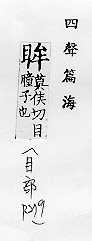 四聲篇海
眸莫侯切目
瞳子也
(目部